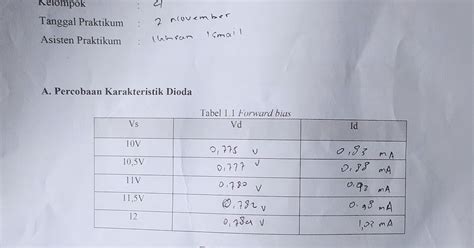 Kelompok : 4
Tanggal Praktikum : 2 november
Asisten Praktikum : Ikhsan Ismail
A. Percobaan Karakteristik Dioda
Tabel 1.1 Forward bias
Vs Vd Id
10V 0,775 V 0,83 mA
10,5V 0,777 V 0,88 mA
11V 0,780 V 0,93 mA
11,5V 0,782 V 0,98 mA
12 0,784 V 1,03 mA